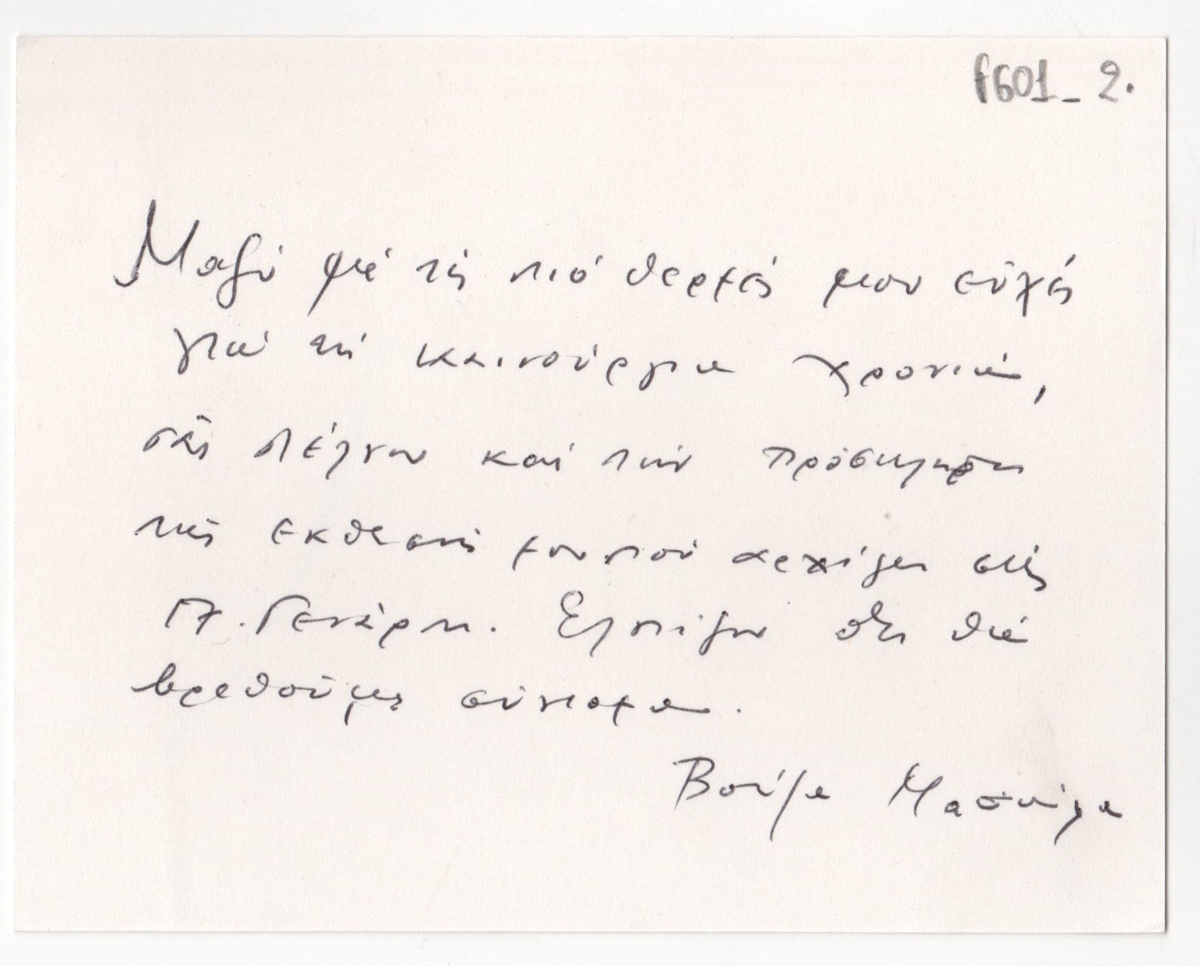 f601_2.
Μαζί μέ τίς πιό θερμές μου εὐχές
γιά τή καινούργια χρονιά,
σᾶς στέλνω καί τήν πρόσκληση
τῆς εκθεσης μου πού αρχίζει στίς
17. Γενάρη. Ελπίζω ὅτι θά
βρεθοῦμε σύντομα.
Βούλα Μασούρα